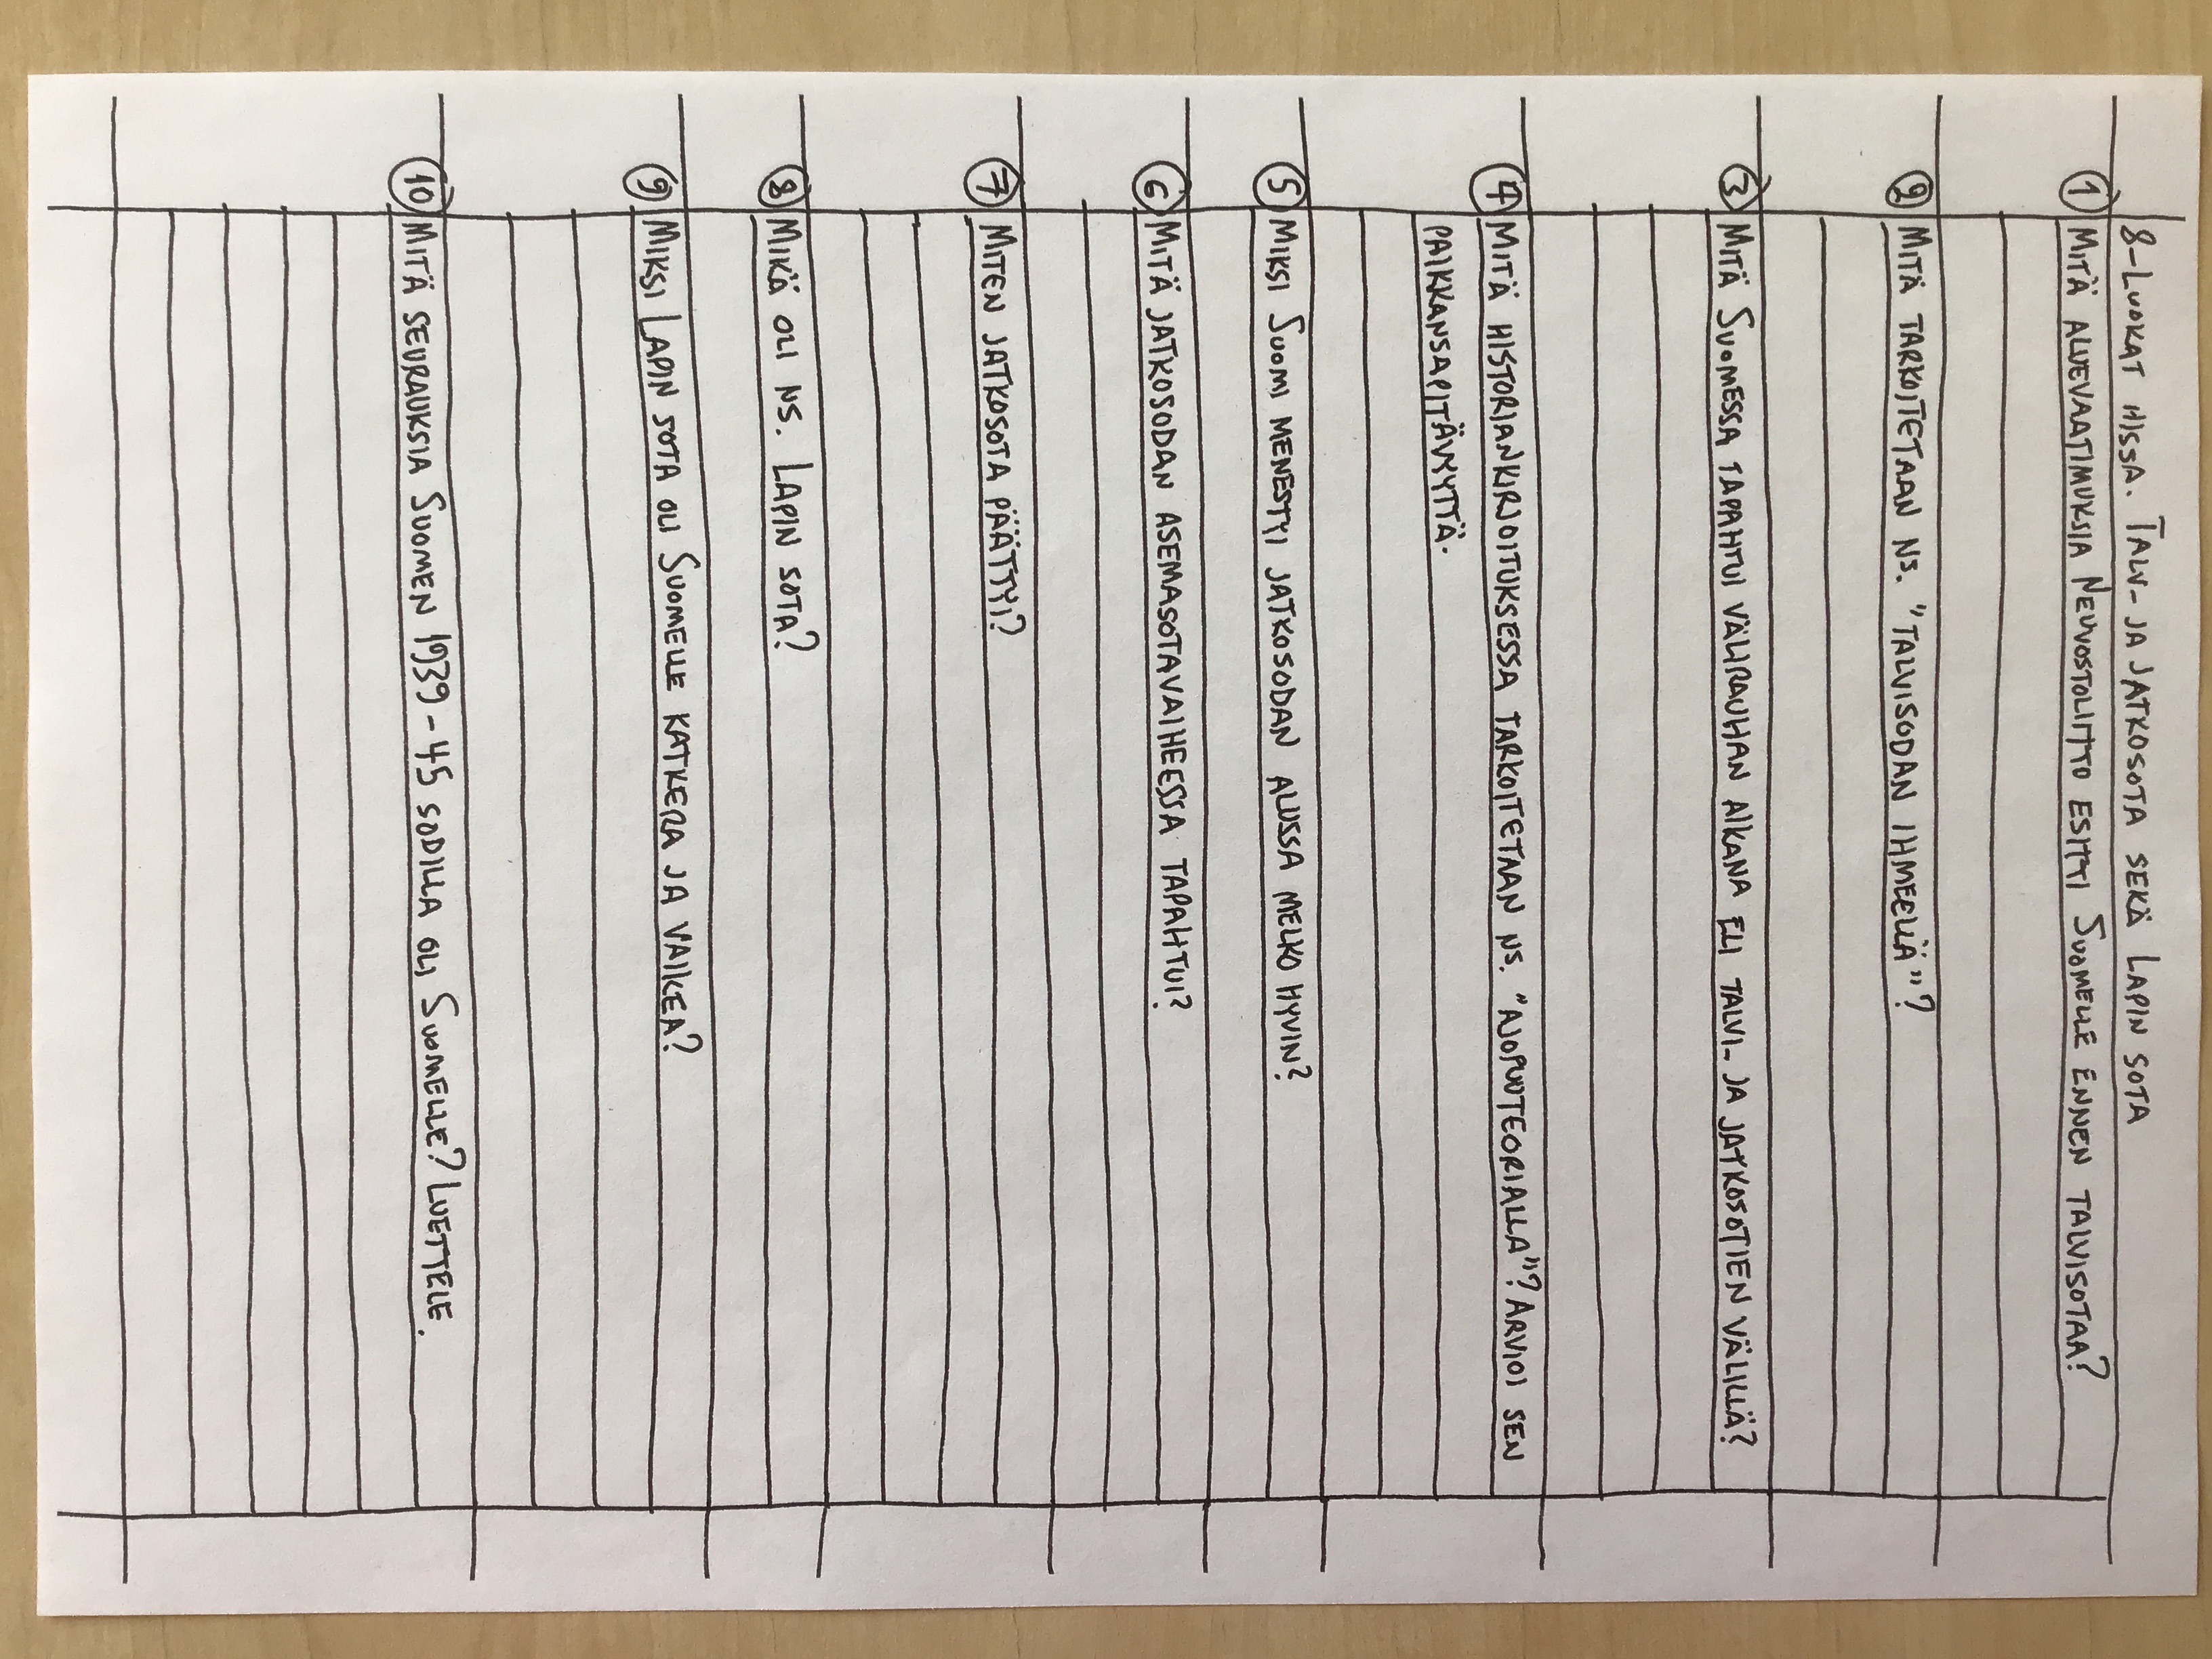 8-LUOKAT HISSA. TALVI- JA JATKOSOTA SEKÄ LAPIN SOTA
① MITÄ ALUEVAATIMUKSIA NEUVOSTOLIITTO ESITTI SUOMELLE ENNEN TALVISOTAA?
② MITÄ TARKOITETAAN NS. "TALVISODAN IHMEELLÄ"?
③ MITÄ SUOMESSA TAPAHTUI VÄLIRAUHAN AIKANA ELI TALVI- JA JATKOSOTIEN VÄLILLÄ?
④ MITÄ HISTORIANKIRJOITUKSESSA TARKOITETAAN NS. "AJOPUUTEORIALLA"? ARVIOI SEN
PAIKKANSAPITÄVYYTTÄ.
⑤ MIKSI SUOMI MENESTYI JATKOSODAN ALUSSA MELKO HYVIN?
⑥ MITÄ JATKOSODAN ASEMASOTAVAIHEESSA TAPAHTUI?
⑦ MITEN JATKOSOTA PÄÄTTYI?
⑧ MIKÄ OLI NS. LAPIN SOTA?
⑨ MIKSI LAPIN SOTA OLI SUOMELLE KATKERA JA VAIKEA?
⑩ MITÄ SEURAUKSIA SUOMEN 1939-45 SODILLA OLI SUOMELLE? LUETTELE.